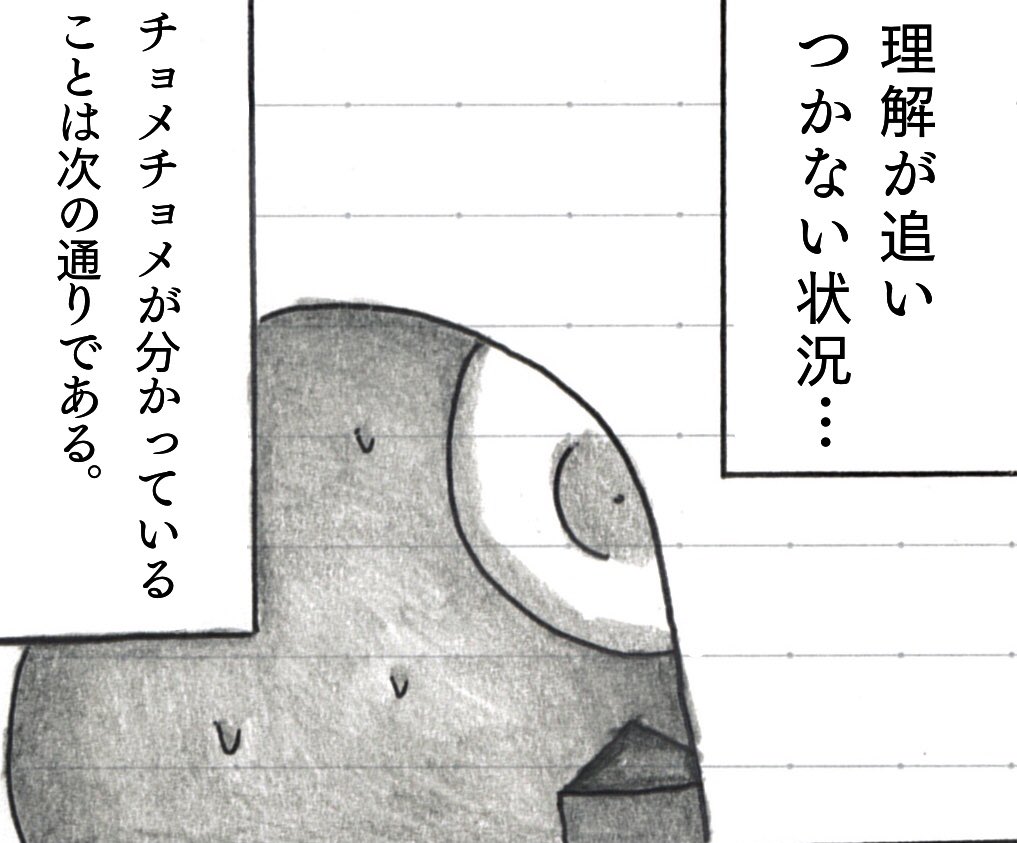 理解が追い
つかない状況…
チョメチョメが分かっている
ことは次の通りである。